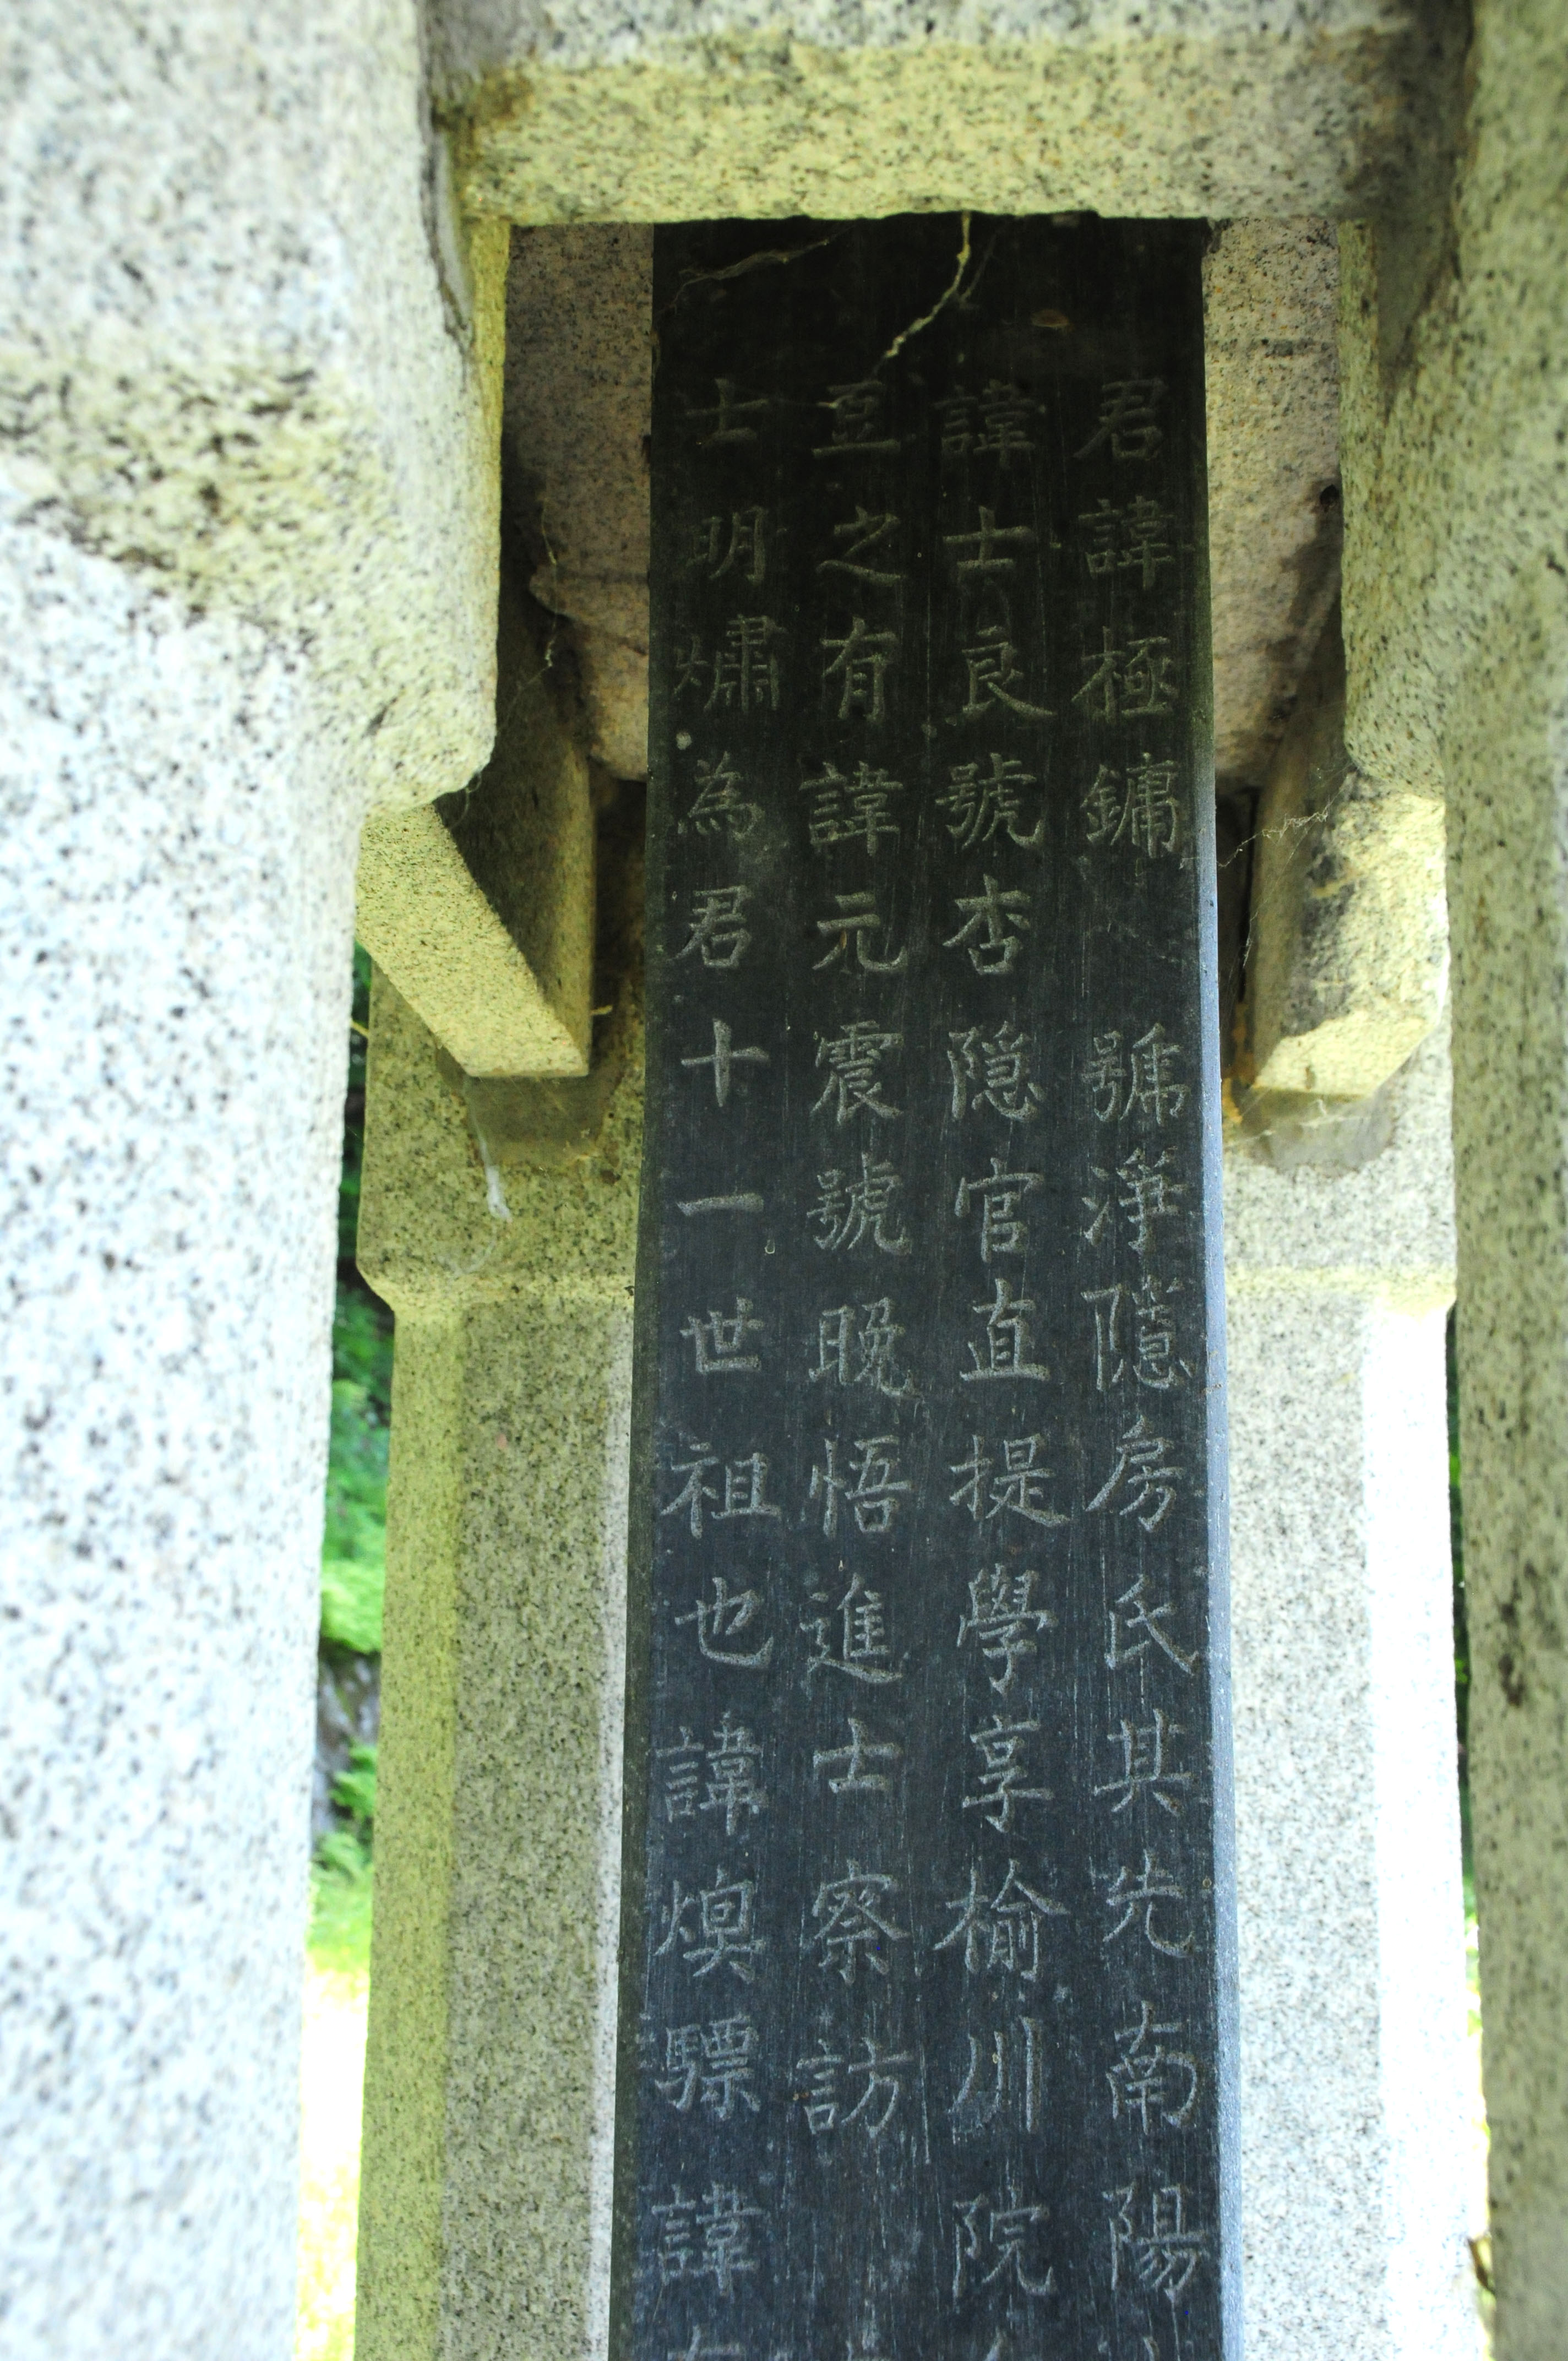 君諱極鏞 號淨隱房氏其先南陽
諱士良號杏隠官直提學享楡川院
豆之有諱元震號晩悟進士察訪
士明爀為君十一世祖也諱熉驃諱